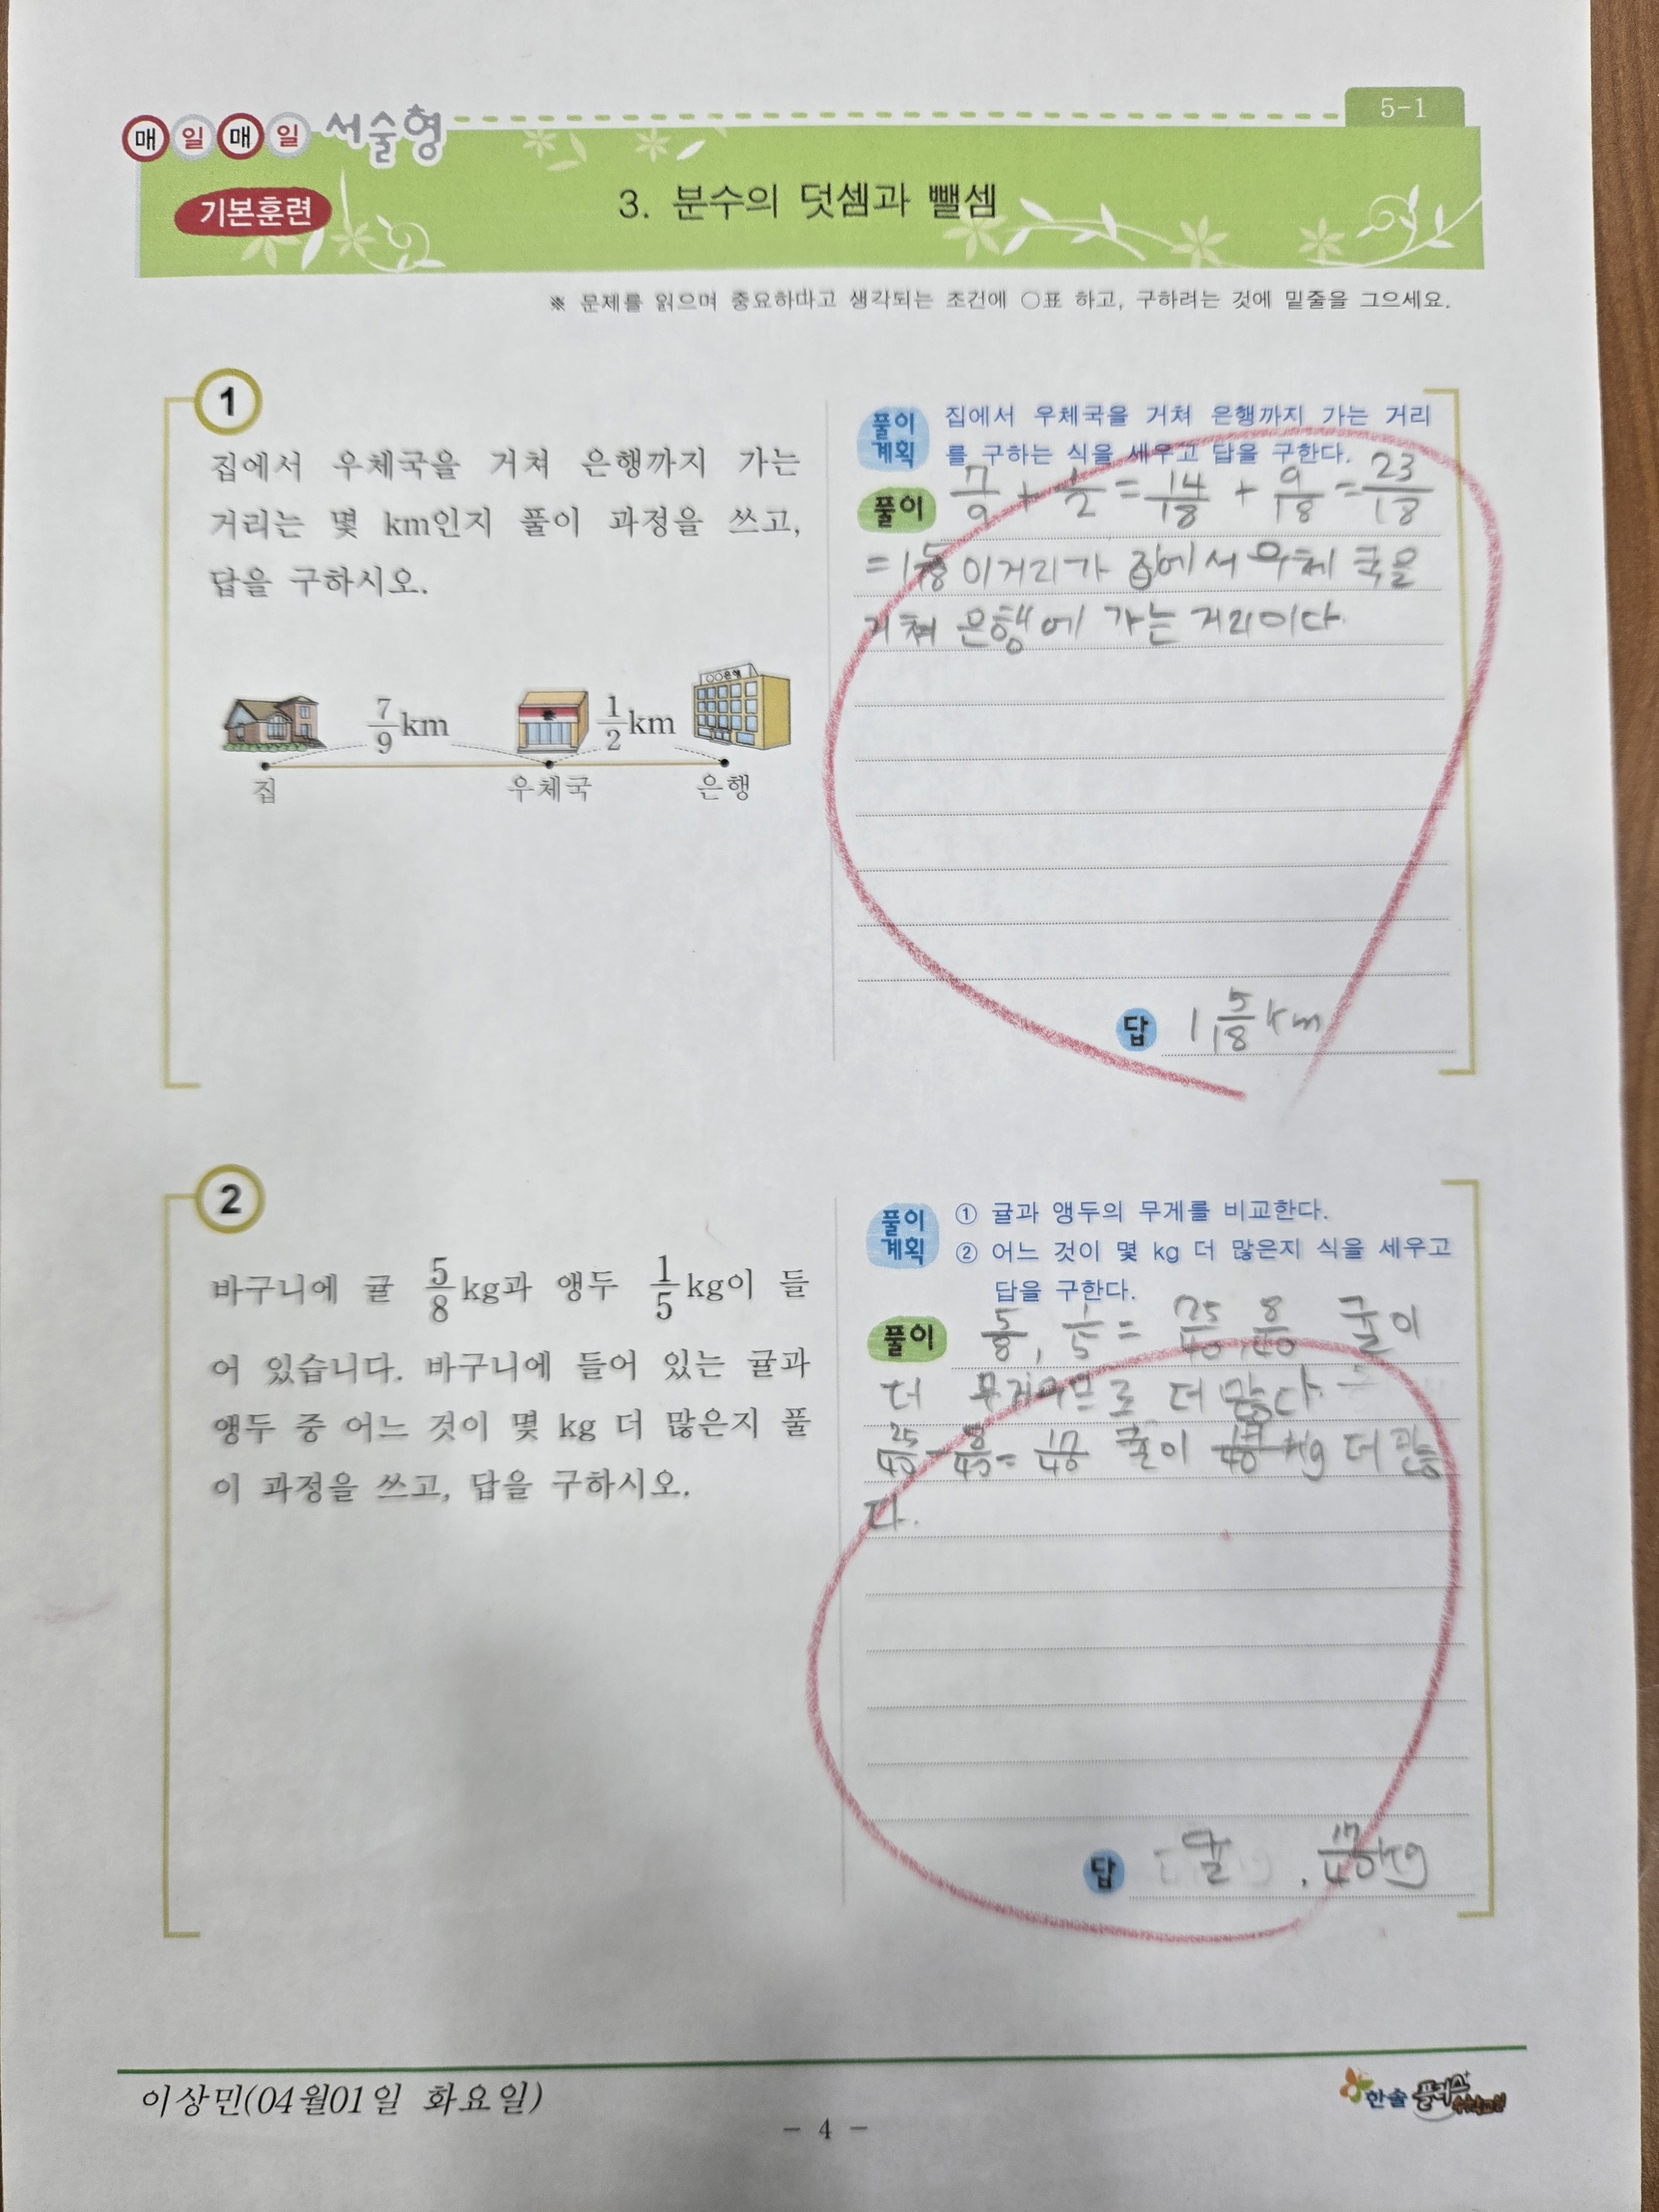 5-1
매일매일 서술형
기본훈련
3. 분수의 덧셈과 뺄셈
※ 문제를 읽으며 중요하다고 생각되는 조건에 ○표 하고, 구하려는 것에 밑줄을 그으세요.
1
집에서 우체국을 거쳐 은행까지 가는
거리는 몇 km인지 풀이 과정을 쓰고,
답을 구하시오.
○○은행
7/9 km
1/2 km
집
우체국
은행
풀이 계획
집에서 우체국을 거쳐 은행까지 가는 거리
를 구하는 식을 세우고 답을 구한다.
풀이
7/9 + 1/2 = 14/18 + 9/18 = 23/18
= 1 5/18 이거리가 집에서 우체국을
거쳐 은행에 가는 거리이다.
답 1 5/18 km
2
바구니에 귤 5/8 kg과 앵두 1/5 kg이 들
어 있습니다. 바구니에 들어 있는 귤과
앵두 중 어느 것이 몇 kg 더 많은지 풀
이 과정을 쓰고, 답을 구하시오.
풀이 계획
① 귤과 앵두의 무게를 비교한다.
② 어느 것이 몇 kg 더 많은지 식을 세우고
답을 구한다.
풀이
5/8, 1/5 = 25/40, 8/40 귤이
더 더 많다.
25/40 - 8/40 = 17/40 귤이 17/40 kg 더 많
다.
답 귤, 17/40 kg
이상민(04월01일 화요일)
- 4 -
한솔 플러스